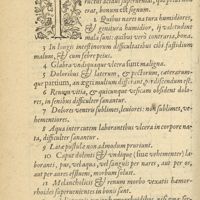 ructus acidus superueniat, qui prius non
erat, bonum est signum.
2 Quibus nares natura humidiores,
& genitura humidior, ij valetudine
mala sunt: quibus verò contraria, bona.
3 In longis intestinorum difficultatibus cibi fastidium
malum, & cum febre peius.
4 Glabra vndiquaque vlcera sunt maligna.
5 Doloribus & laterum, & pectorum, cæterarum-
que partium, an ægri multum differant, perdiscendum est.
6 Renum vitia, & quæcunque vesicam obsident dolo-
res, in senibus difficulter sanantur.
7 Dolores ventris sublimes, leuiores: non sublimes, ve-
hementiores.
8 Aqua inter cutem laborantibus vlcera in corpore na-
ta, difficulter sanantur.
9 Latæ pustulæ non admodum pruriunt.
10 Caput dolenti & vndique (siue vehementer) la-
boranti, pus, vel aqua, vel sanguis per nares, aut per os,
aut per aures effluens, morbum soluit.
11 Melancholicis & renum morbo vexatis hæmor-
rhoides superuenientes in bonis sunt.